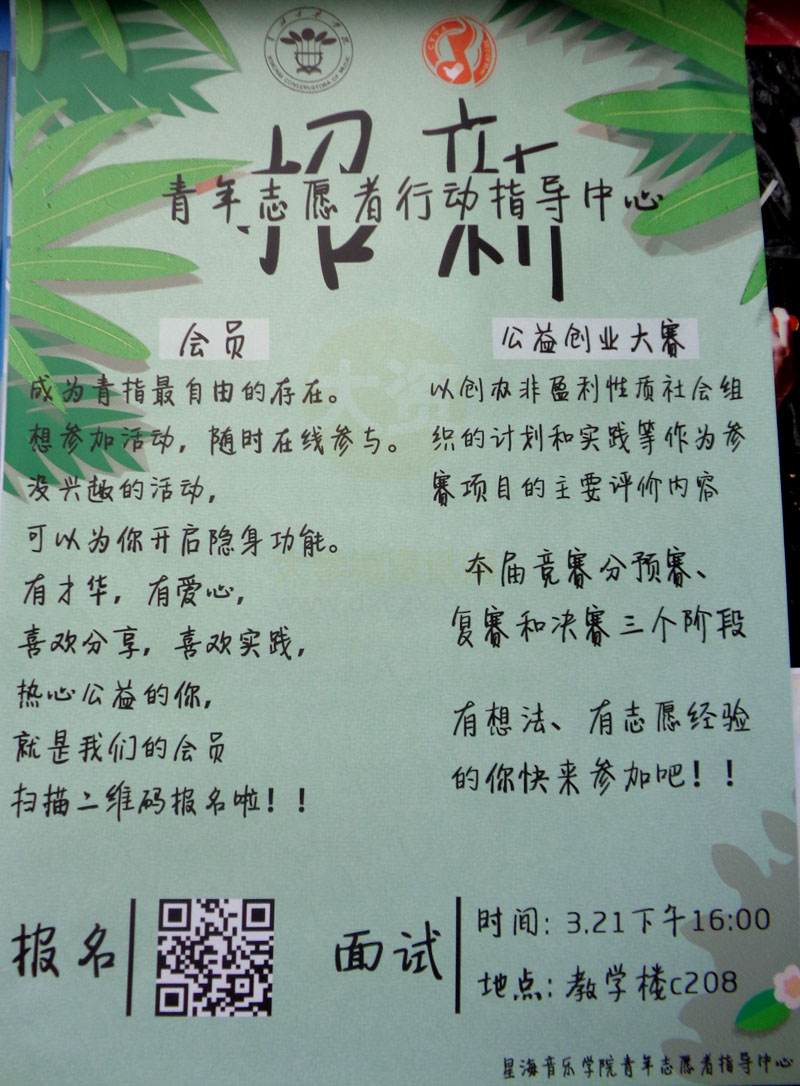 XINGHAI CONSERVATORY OF MUSIC
招新
青年志愿者行动指导中心
会员
成为青指最自由的存在。
想参加活动，随时在线参与。
没兴趣的活动，
可以为你开启隐身功能。
有才华，有爱心，
喜欢分享，喜欢实践，
热心公益的你，
就是我们的会员
扫描二维码报名啦！！
公益创业大赛
以创办非盈利性质社会组
织的计划和实践等作为参
赛项目的主要评价内容
本届竞赛分预赛、
复赛和决赛三个阶段
有想法、有志愿经验
的你快来参加吧！！
报名
面试
时间：3.21下午16:00
地点：教学楼c208
星海音乐学院青年志愿者指导中心